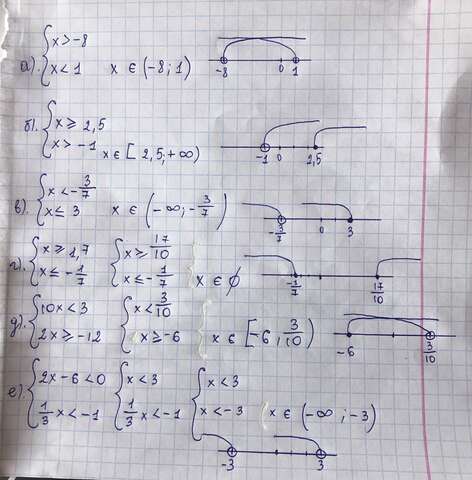 а). { x > -8
x < 1    x ∈ (-8; 1)    -8  0  1
б). { x ≥ 2,5
x > -1    x ∈ [2,5; +∞)    -1  0  2,5
в). { x < -3/7
x ≤ 3    x ∈ (-∞; -3/7)    -3/7  0  3
г). { x ≥ 1,7    { x ≥ 17/10
x ≤ -1/7    x ≤ -1/7    x ∈ ∅    -1/7  17/10
д). { 10x < 3    { x < 3/10
2x ≥ -12    x ≥ -6    x ∈ [-6; 3/10)    -6  3/10
е). { 2x - 6 < 0    { x < 3    { x < 3
1/3 x < -1    1/3 x < -1    x < -3    x ∈ (-∞; -3)
-3  3